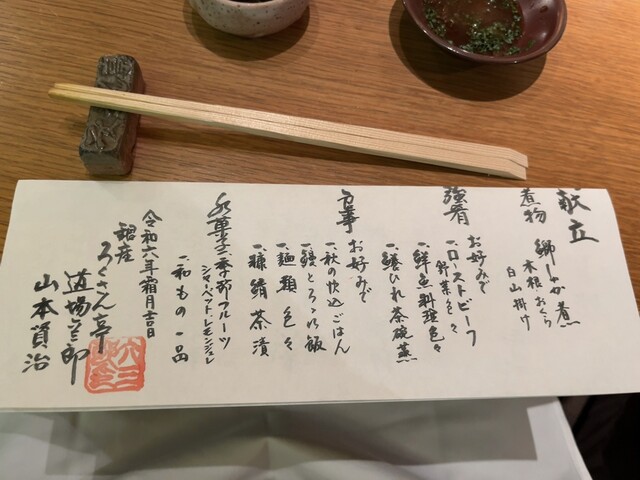 献立
煮物
木根 おくら
白山掛け
強肴
お好みで
一、ローストビーフ
野菜色々
一、鮮魚料理色々
一、鱶ひれ茶碗蒸
食事
お好みで
一、秋の炊込ごはん
一、鰻とろろ小飯
一、麺類色々
一、糠鯖茶漬
水菓子
季節フルーツ
シャーベット、レモンジュレ
一、和もの一品
令和六年霜月吉日
銀座
ろくさん亭
道場六三郎
山本賢治